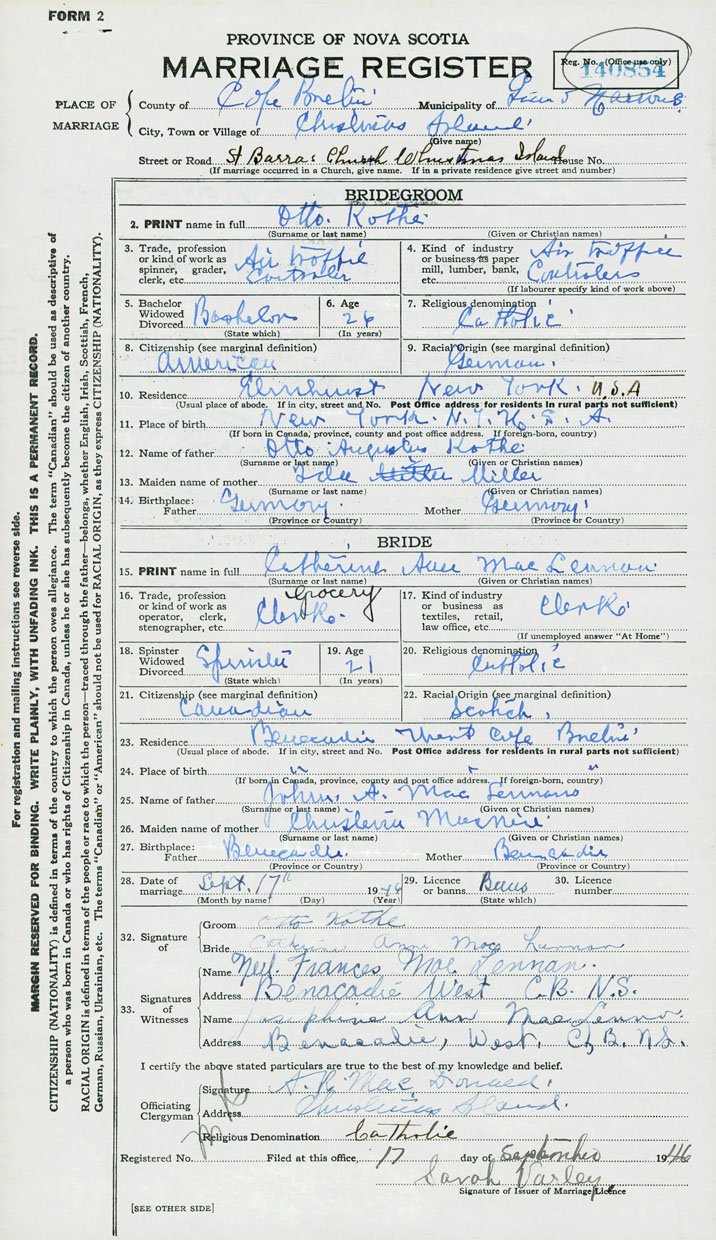 FORM 2
PROVINCE OF NOVA SCOTIA
MARRIAGE REGISTER
Reg. No. (Office use only)
140854
PLACE OF MARRIAGE
County of Cape Breton Municipality of
City, Town or Village of Christmas Island
(Give name)
Street or Road St Barra's Church Christmas Island House No.
(If marriage occurred in a Church, give name. If in a private residence give street and number)
BRIDEGROOM
2. PRINT name in full Otto Kothe
(Surname or last name) (Given or Christian names)
3. Trade, profession or kind of work as spinner, grader, clerk, etc. Air Traffic Controler
4. Kind of industry or business as paper mill, lumber, bank, etc. Air Traffic Controlers
(If labourer specify kind of work above)
5. Bachelor Widowed Divorced Bachelor
(State which)
6. Age 26
(In years)
7. Religious denomination Catholic
8. Citizenship (see marginal definition) American
9. Racial Origin (see marginal definition) German
10. Residence Elmhurst New York. U.S.A
(Usual place of abode. If in city, street and No. Post Office address for residents in rural parts not sufficient)
11. Place of birth New York. N.Y.
(If born in Canada, province, county and post office address. If foreign-born, country)
12. Name of father Otto Augustus Kothe
(Surname or last name) (Given or Christian names)
13. Maiden name of mother Miller
(Surname or last name) (Given or Christian names)
14. Birthplace: Father Germany. Mother Germany
(Province or Country) (Province or Country)
BRIDE
15. PRINT name in full Catherine Ann Mac Lennan
(Surname or last name) (Given or Christian names)
16. Trade, profession or kind of work as operator, clerk, stenographer, etc. Grocery Clerk.
17. Kind of industry or business as textiles, retail, law office, etc. Clerk
(If unemployed answer "At Home")
18. Spinster Widowed Divorced Spinster
(State which)
19. Age 21
(In years)
20. Religious denomination Catholic
21. Citizenship (see marginal definition) Canadian
22. Racial Origin (see marginal definition) Scotch
23. Residence Benacadie West Cape Breton
(Usual place of abode. If in city, street and No. Post Office address for residents in rural parts not sufficient)
24. Place of birth " " "
(If born in Canada, province, county and post office address. If foreign-born, country)
25. Name of father A. Mac Lennan
(Surname or last name) (Given or Christian names)
26. Maiden name of mother MacNeil
(Surname or last name) (Given or Christian names)
27. Birthplace: Father Benacadie. Mother Benacadie
(Province or Country) (Province or Country)
28. Date of marriage Sept. 17th 1946
(Month by name) (Day) (Year)
29. Licence or banns Banns
(State which)
30. Licence number
32. Signature of
Groom Otto Kothe
Bride Catherine Anne Mac Lennan
33. Signatures of Witnesses
Name Neil Frances Mac Lennan.
Address Benacadie West C.B. N.S.
Name Josephine Ann MacLennan
Address Benacadie, West, C.B. N.S.
I certify the above stated particulars are true to the best of my knowledge and belief.
Officiating Clergyman
Signature A. R. Mac Donald.
Address Christmas Island.
Religious Denomination Catholic
Registered No. Filed at this office, 17 day of September 1946
Sarah Varley
Signature of Issuer of Marriage Licence
[SEE OTHER SIDE]
For registration and mailing instructions see reverse side.
MARGIN RESERVED FOR BINDING. WRITE PLAINLY, WITH UNFADING INK. THIS IS A PERMANENT RECORD.
CITIZENSHIP (NATIONALITY) is defined in terms of the country to which the person owes allegiance. The term "Canadian" should be used as descriptive of
a person who was born in Canada or who has rights of Citizenship in Canada, unless he or she has subsequently become the citizen of another country.
RACIAL ORIGIN is defined in terms of the people or race to which the person—traced through the father—belongs, whether English, Irish, Scottish, French,
German, Russian, Ukrainian, etc. The terms "Canadian" or "American" should not be used for RACIAL ORIGIN, as they express CITIZENSHIP (NATIONALITY).